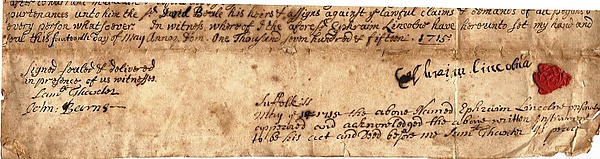 purtenances unto him the sd David Beale his heirs & assigns against ye lawful claims & demands of all persons
every person whatsoever In witness whereof I the aforesd Ephraim Lincolne have hereunto set my hand and
seal this day of May Annoq Dom. One Thousand seven hundred & fifteen. 1715
Signed sealed & delivered
in presence of us witnesses.
Saml Thaxter
John Barns
Ephraim Lincolne
Suffolk ss
May ye 1715 the above Named Ephraim Lincolne personly
appeared and acknowledged the above written Instrument
to be his act and Deed before me Saml Thaxter Js peace